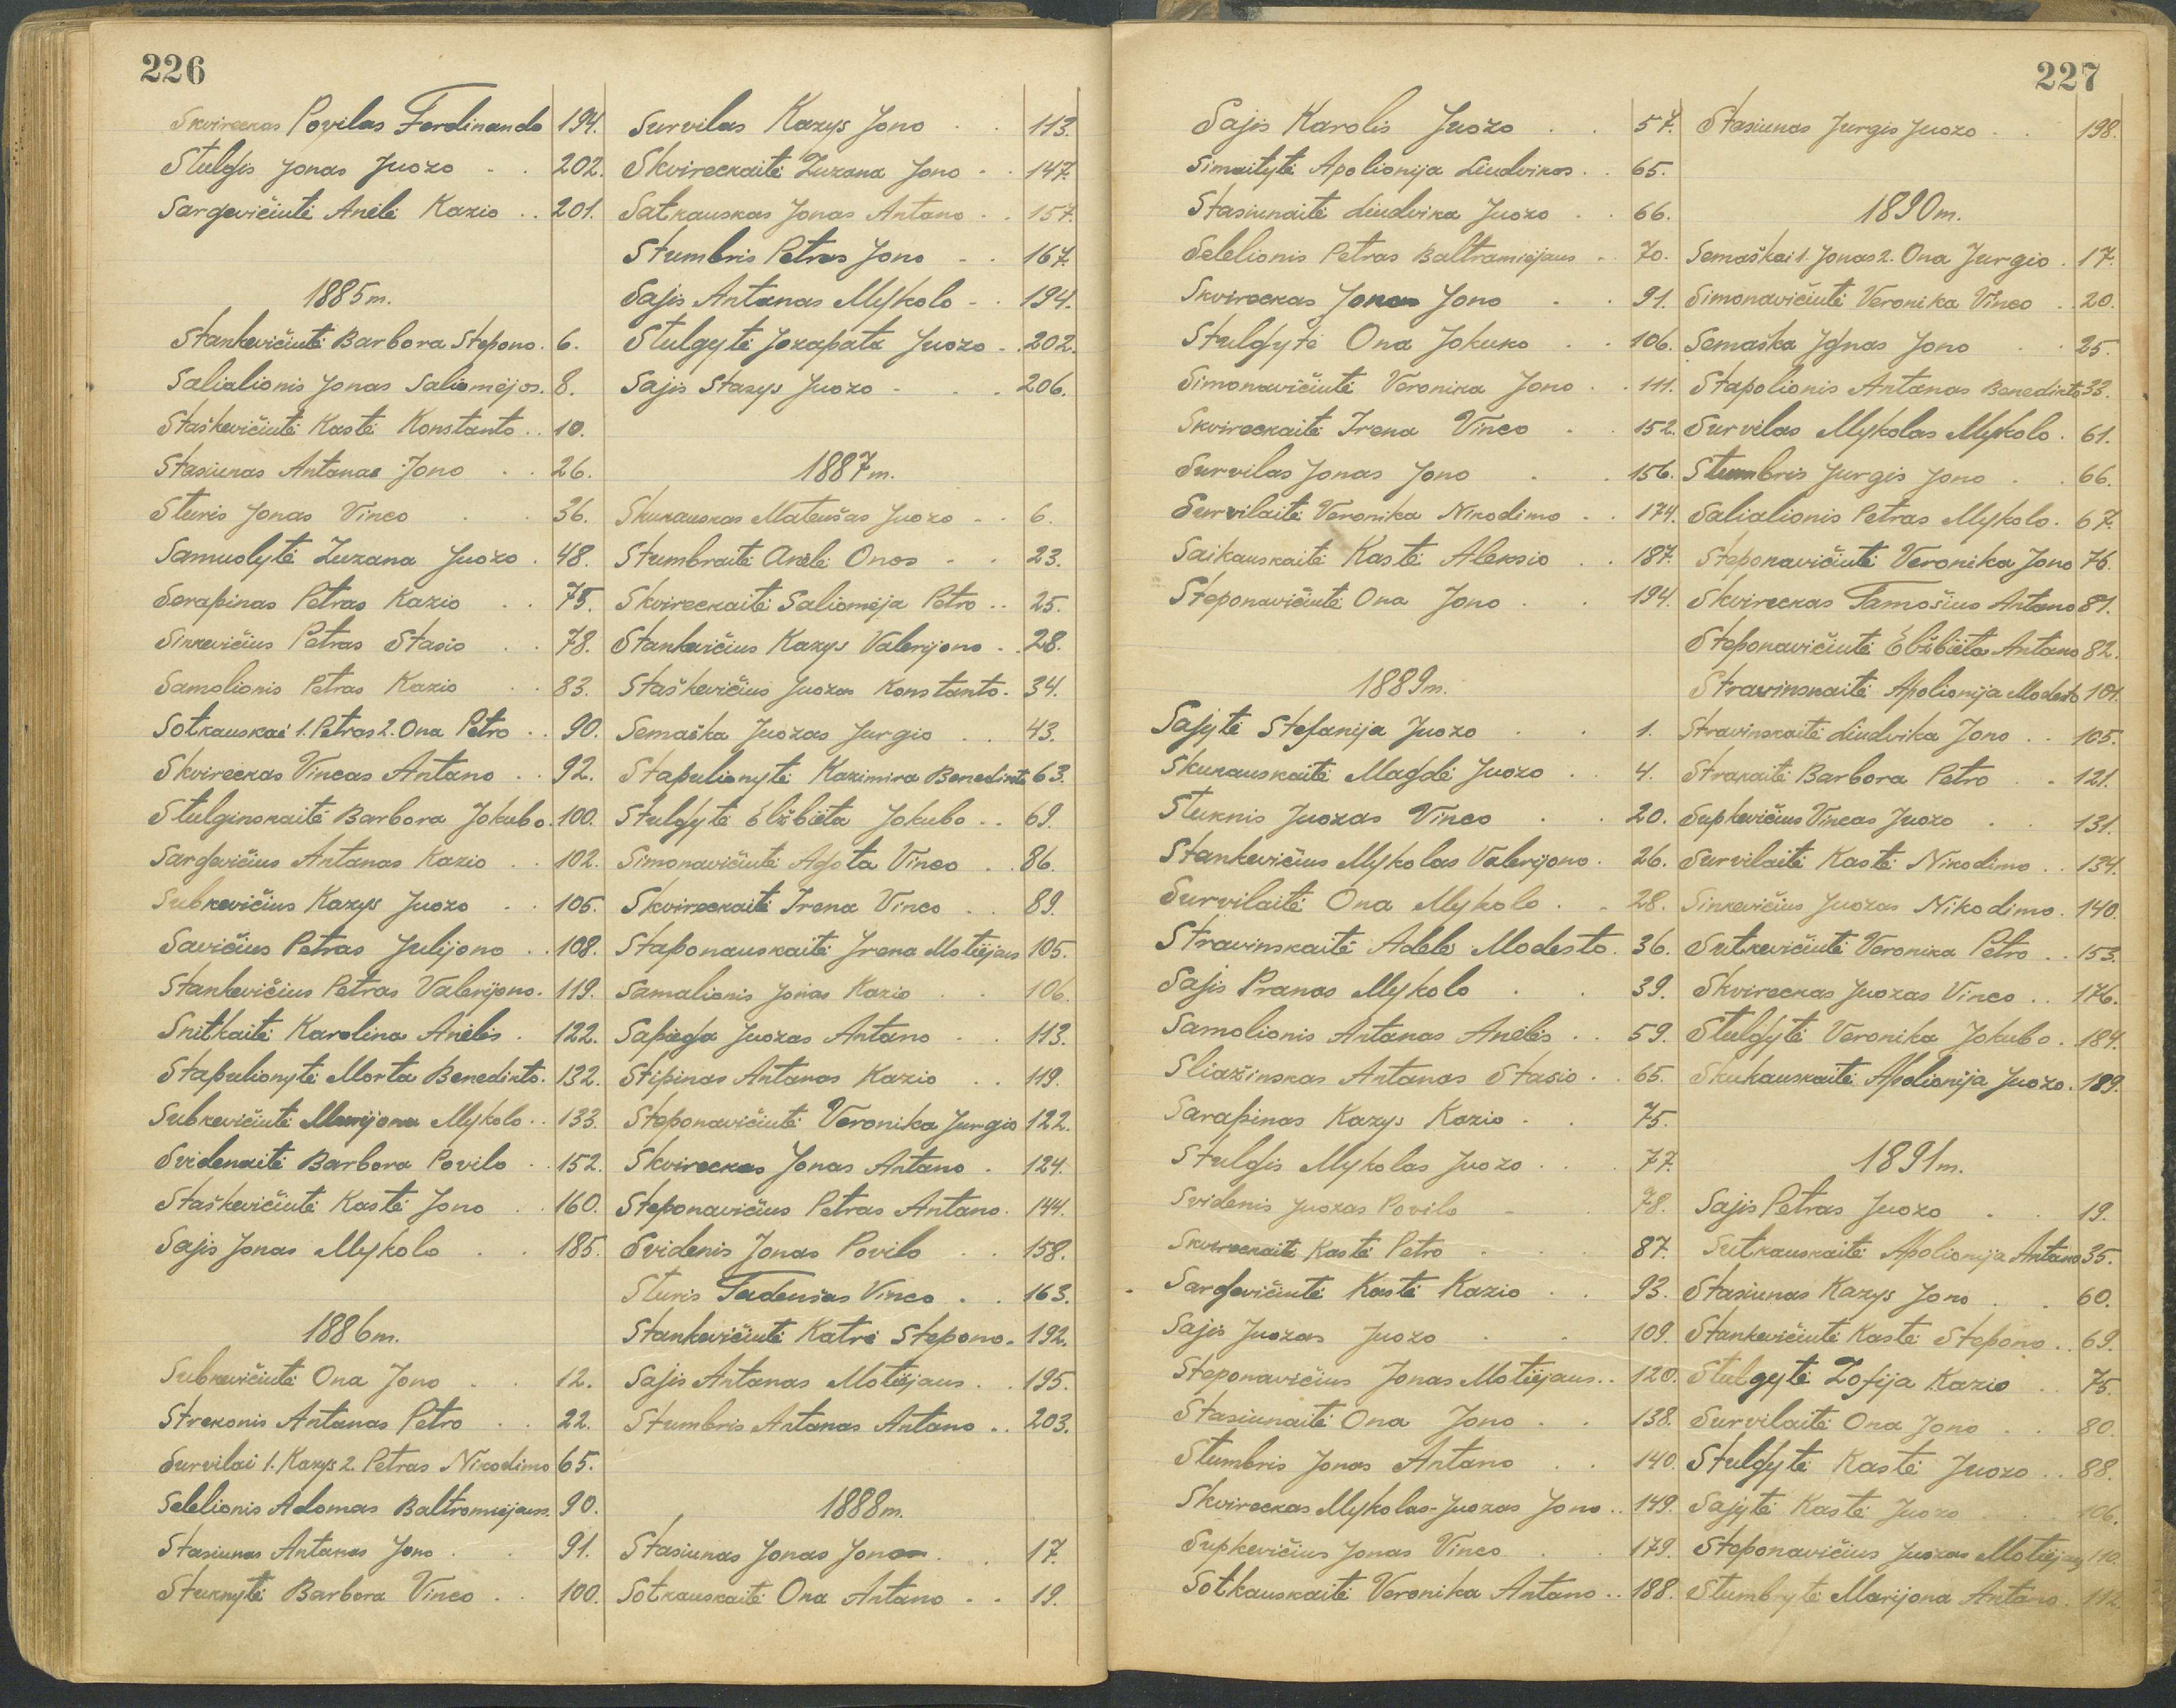 226
Skvireckas Povilas Ferdinando 194.
Stulgis Jonas Juozo . . 202.
Sargevičiutė Anėlė Kazio . . 201.
1885 m.
Stankevičiutė Barbora Stepono. 6.
Salialionis Jonas Saliomėjos. 8.
Staškevičiutė Kastė Konstanto . . 10.
Stasiunas Antanas Jono . . 26.
Sturis Jonas Vinco . . 36.
Samuolytė Zuzana Juozo . 48.
Serapinas Petras Kazio . . 75.
Sinkevičius Petras Stasio . . 78.
Samolionis Petras Kazio . . 83.
Sotkauskai 1. Petras 2. Ona Petro . . 90.
Skvireckas Vincas Antano . . 92.
Stulginskaitė Barbora Jokubo. 100.
Sargevičius Antanas Kazio . . 102.
Subkevičius Kazys Juozo . . 105.
Savičius Petras Julijono . . 108.
Stankevičius Petras Valerijono. 119.
Snitkaitė Karolina Anėlės . 122.
Stapulionytė Morta Benedikto. 132.
Subkevičiutė Marijona Mykolo . . 133.
Svidenaitė Barbora Povilo . . 152.
Staškevičiutė Kastė Jono . . 160.
Sajis Jonas Mykolo . . 185.
1886 m.
Subkevičiutė Ona Jono . . 12.
Strekonis Antanas Petro . . 22.
Survilai 1. Kazys 2. Petras Nikodimo 65.
Selelionis Adomas Baltromiejaus. 90.
Stasiunas Antanas Jono . . 91.
Stuknytė Barbora Vinco . . 100.
Survilas Kazys Jono . . 113.
Skvireckaitė Zuzana Jono . . 147.
Satkauskas Jonas Antano . . 157.
Stumbris Petras Jono . . 167.
Sajis Antanas Mykolo . . 194.
Stulgytė Jozapata Juozo . . 202.
Sajis Stasys Juozo . . . 206.
1887 m.
Skukauskas Mateušas Juozo . . 6.
Stumbraitė Anėlė Onos . . 23.
Skvireckaitė Saliomėja Petro . . 25.
Stankevičius Kazys Valerijono . . 28.
Staškevičius Juozas Konstanto . 34.
Semaška Juozas Jurgio . . 43.
Stapulionytė Kazimira Benedikto 63.
Stulgytė Elžbieta Jokubo . . 69.
Simonavičiutė Agota Vinco . . 86.
Skvireckaitė Irena Vinco . . 89.
Staponauskaitė Irena Motiejaus 105.
Samalionis Jonas Kazio . . 106.
Sapiega Juozas Antano . . 113.
Stipinas Antanas Kazio . . 119.
Steponavičiutė Veronika Jurgio 122.
Skvireckas Jonas Antano . 124.
Steponavičius Petras Antano. 144.
Svidenis Jonas Povilo . . 158.
Sturis Tadeušas Vinco . . 163.
Stankevičiutė Katrė Stepono . 192.
Sajis Antanas Motiejaus . . 195.
Stumbris Antanas Antano . . 203.
1888 m.
Stasiunas Jonas Jono . . 17.
Sotkauskaitė Ona Antano . . 19.
227
Sajis Karolis Juozo . . 57.
Simaitytė Apolionija Liudvikos . . 65.
Stasiunaitė Liudvika Juozo . . 66.
Selelionis Petras Baltramiejaus . 70.
Skvireckas Jonas Jono . . 91.
Stulgytė Ona Jokuko . . 106.
Simonavičiutė Veronika Jono . . 111.
Skvireckaitė Irena Vinco . . 152.
Survilas Jonas Jono . . 156.
Survilaitė Veronika Nikodimo . . 174.
Saikauskaitė Kastė Aleksio . . 187.
Steponavičiutė Ona Jono . . 194.
1889 m.
Sajytė Stefanija Juozo . . 1.
Skukauskaitė Magdė Juozo . . 4.
Stuknis Juozas Vinco . . 20.
Stankevičius Mykolas Valerijono . 26.
Survilaitė Ona Mykolo . . 28.
Stravinskaitė Adelė Modesto . 36.
Sajis Pranas Mykolo . . 39.
Samolionis Antanas Anėlės . . 59.
Sliažinskas Antanas Stasio . . 65.
Sarapinas Kazys Kazio . . 75.
Stulgis Mykolas Juozo . . . 77.
Svidenis Juozas Povilo . . 78.
Skvireckaitė Kastė Petro . . . 87.
Sargevičiutė Kastė Kazio . . 93.
Sajis Juozas Juozo . . 109.
Steponavičius Jonas Motiejaus . . 120.
Stasiunaitė Ona Jono . . 138.
Stumbris Jonas Antano . . 140.
Skvireckas Mykolas-Juozas Jono . . 149.
Supkevičius Jonas Vinco . . 179.
Sotkauskaitė Veronika Antano . . 188.
Stasiunas Jurgis Juozo . . 198.
1890 m.
Semaškai 1. Jonas 2. Ona Jurgio . 17.
Simonavičiutė Veronika Vinco . 20.
Semaška Ignas Jono . . 25.
Stapolionis Antanas Benedikto 33.
Survilas Mykolas Mykolo . 61.
Stumbris Jurgis Jono . . 66.
Salialionis Petras Mykolo . 67.
Steponavičiutė Veronika Jono 76.
Skvireckas Tamošius Antano 81.
Steponavičiutė Elžbieta Antano 82.
Stravinskaitė Apolionija Modesto 101.
Stravinskaitė Liudvika Jono . . 105.
Strakaitė Barbora Petro . . 121.
Supkevičius Vincas Juozo . . 131.
Survilaitė Kastė Nikodimo . . 134.
Sinkevičius Juozas Nikodimo . 140.
Sutkevičiutė Veronika Petro . . 153.
Skvireckas Juozas Vinco . . 176.
Stulgytė Veronika Jokubo . 184.
Skukauskaitė Apolionija Juozo . 189.
1891 m.
Sajis Petras Juozo . . 19.
Sutkauskaitė Apolionija Antano 35.
Stasiunas Kazys Jono . . 60.
Stankevičiutė Kastė Stepono . . 69.
Stulgytė Zofija Kazio . . 75.
Survilaitė Ona Jono . . 80.
Stulgytė Kastė Juozo . . 88.
Sajytė Kastė Juozo . . . 106.
Steponavičius Juozas Motiejaus 110.
Stumbrytė Marijona Antano . 112.